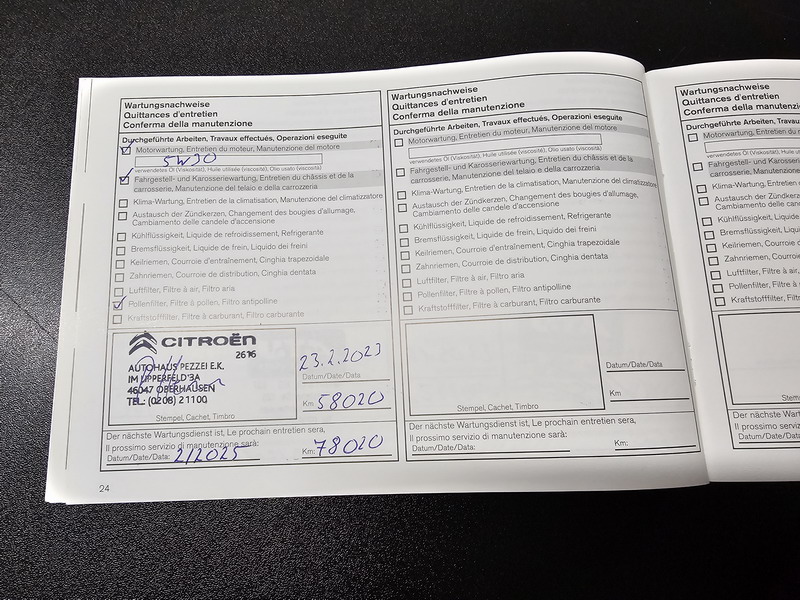 Wartungsnachweise
Quittances d'entretien
Conferma della manutenzione
Durchgeführte Arbeiten, Travaux effectués, Operazioni eseguite
Motorwartung, Entretien du moteur, Manutenzione del motore
5W30
verwendetes Öl (Viskosität), Huile utilisée (viscosité), Olio usato (viscosità)
Fahrgestell- und Karosseriewartung, Entretien du châssis et de la
carrosserie, Manutenzione del telaio e della carrozzeria
Klima-Wartung, Entretien de la climatisation, Manutenzione del climatizzatore
Austausch der Zündkerzen, Changement des bougies d'allumage,
Cambiamento delle candele d'accensione
Kühlflüssigkeit, Liquide de refroidissement, Refrigerante
Bremsflüssigkeit, Liquide de frein, Liquido dei freni
Keilriemen, Courroie d'entraînement, Cinghia trapezoidale
Zahnriemen, Courroie de distribution, Cinghia dentata
Luftfilter, Filtre à air, Filtro aria
Pollenfilter, Filtre à pollen, Filtro antipolline
Kraftstofffilter, Filtre à carburant, Filtro carburante
CITROËN
2616
AUTOHAUS PEZZEI E.K.
IM LIPPERFELD 3A
46047 OBERHAUSEN
TEL: (0208) 21100
Stempel, Cachet, Timbro
23.2.2023
Datum/Date/Data
Km 58020
Der nächste Wartungsdienst ist, Le prochain entretien sera,
Il prossimo servizio di manutenzione sarà:
Datum/Date/Data: 2/2025 Km: 78020
24
Wartungsnachweise
Quittances d'entretien
Conferma della manutenzione
Durchgeführte Arbeiten, Travaux effectués, Operazioni eseguite
Motorwartung, Entretien du moteur, Manutenzione del motore
verwendetes Öl (Viskosität), Huile utilisée (viscosité), Olio usato (viscosità)
Fahrgestell- und Karosseriewartung, Entretien du châssis et de la
carrosserie, Manutenzione del telaio e della carrozzeria
Klima-Wartung, Entretien de la climatisation, Manutenzione del climatizzatore
Austausch der Zündkerzen, Changement des bougies d'allumage,
Cambiamento delle candele d'accensione
Kühlflüssigkeit, Liquide de refroidissement, Refrigerante
Bremsflüssigkeit, Liquide de frein, Liquido dei freni
Keilriemen, Courroie d'entraînement, Cinghia trapezoidale
Zahnriemen, Courroie de distribution, Cinghia dentata
Luftfilter, Filtre à air, Filtro aria
Pollenfilter, Filtre à pollen, Filtro antipolline
Kraftstofffilter, Filtre à carburant, Filtro carburante
Stempel, Cachet, Timbro
Datum/Date/Data
Km
Der nächste Wartungsdienst ist, Le prochain entretien sera,
Il prossimo servizio di manutenzione sarà:
Datum/Date/Data: Km:
Wartungsnachweise
Quittances d'entretien
Conferma della manutenzion
Durchgeführte Arbeiten, Travaux
Motorwartung, Entretien du
verwendetes Öl (Viskosität), Hui
Fahrgestell- und Karosse
carrosserie, Manutenzion
Klima-Wartung, Entretien
Austausch der Zündkerz
Cambiamento delle can
Kühlflüssigkeit, Liquide d
Bremsflüssigkeit, Liquide
Keilriemen, Courroie d'e
Zahnriemen, Courroie d
Luftfilter, Filtre à air, Filt
Pollenfilter, Filtre à poll
Kraftstofffilter, Filtre à
Stem
Der nächste Wartungsdiens
Il prossimo servizio di manu
Datum/Date/Data: